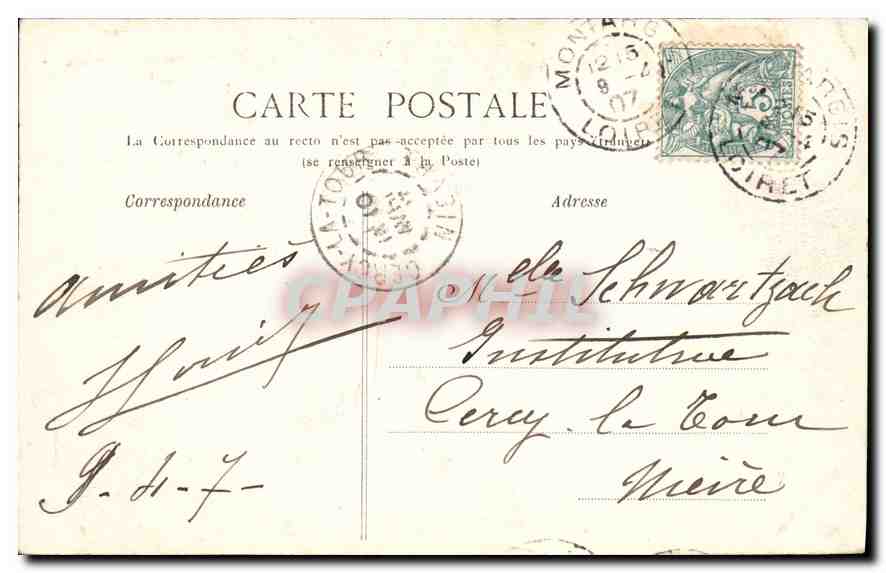 CARTE POSTALE
La Correspondance au recto n'est pas acceptée par tous les pays étrangers
(se renseigner à la Poste)
Correspondance
Adresse
MONTARGIS
12 15
9 - 4
07
LOIRET
CERCY-LA-TOUR
CPAPHIL
amitiés
9-4-7-
Melle Schwartzach
Institutrice
Cercy la Tour
Nièvre